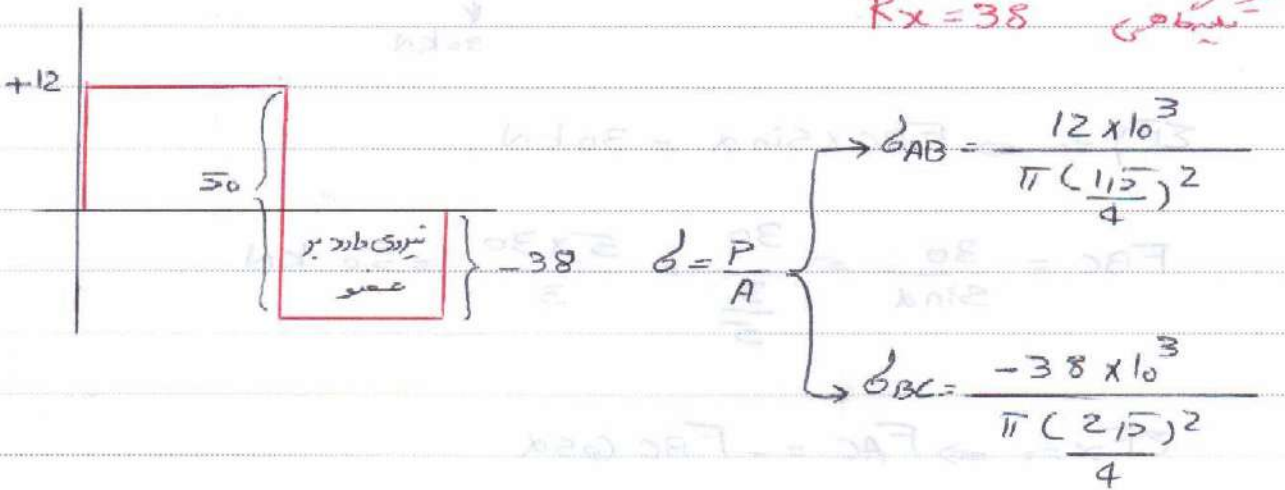 Rx = 38 تکیه‌گاهی
+12
50
نیروی وارد بر
عضو
-38
σ = P/A
σAB = 12 x 10^3 / π(1,5/4)^2
σBC = -38 x 10^3 / π(2,5)^2/4